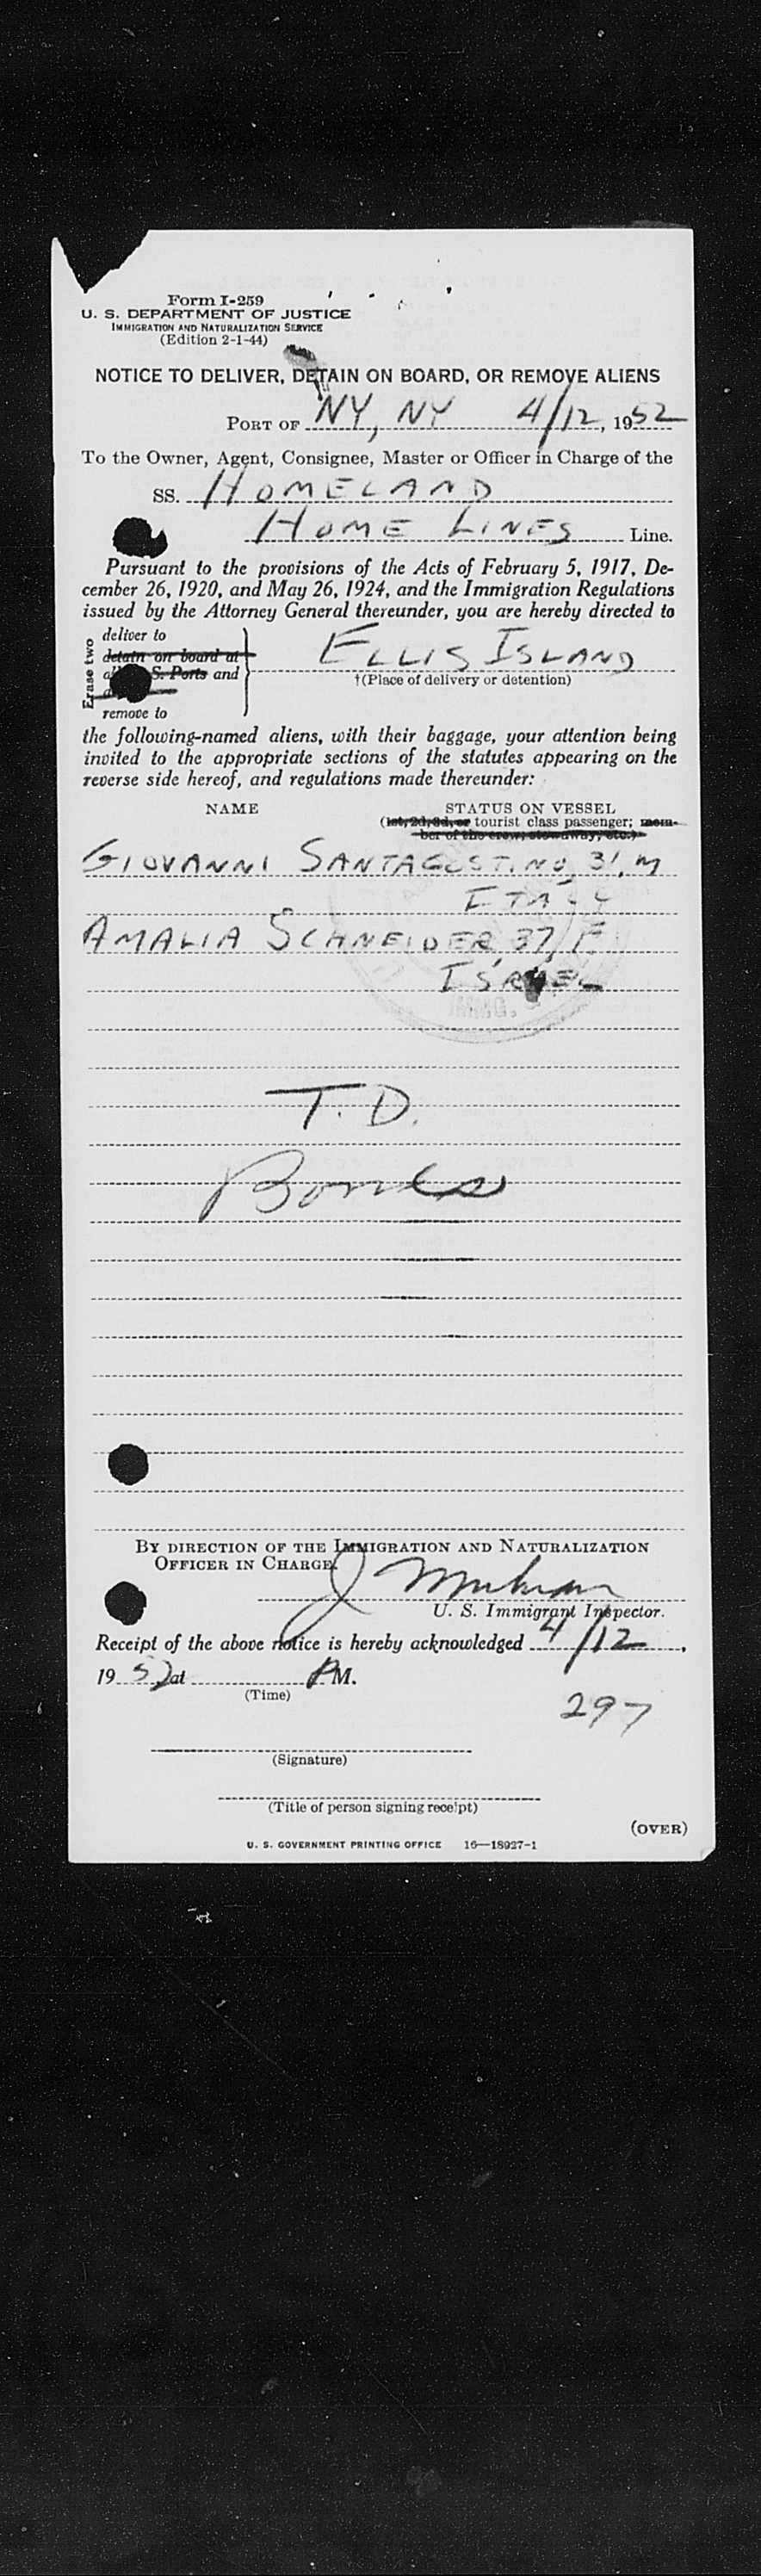 Form I-259
U. S. DEPARTMENT OF JUSTICE
IMMIGRATION AND NATURALIZATION SERVICE
(Edition 2-1-44)
NOTICE TO DELIVER, DETAIN ON BOARD, OR REMOVE ALIENS
PORT OF NY, NY 4/12, 1952
To the Owner, Agent, Consignee, Master or Officer in Charge of the
SS. HOMELAND
HOME LINES Line.
Pursuant to the provisions of the Acts of February 5, 1917, De-
cember 26, 1920, and May 26, 1924, and the Immigration Regulations
issued by the Attorney General thereunder, you are hereby directed to
Erase two
deliver to
detain on board at
S. Ports and
remove to
ELLIS ISLAND
†(Place of delivery or detention)
the following-named aliens, with their baggage, your attention being
invited to the appropriate sections of the statutes appearing on the
reverse side hereof, and regulations made thereunder:
NAME STATUS ON VESSEL
(1st, 2d, 3d, or tourist class passenger; mem-
ber of the crew, stowaway, etc.)
GIOVANNI SANTAGOSTINO, 31, M
ITALY
AMALIA SCHNEIDER, 37, F
ISRAEL
T. D.
BY DIRECTION OF THE IMMIGRATION AND NATURALIZATION
OFFICER IN CHARGE.
U. S. Immigrant Inspector.
Receipt of the above notice is hereby acknowledged 4/12,
1952 at PM.
(Time)
297
(Signature)
(Title of person signing receipt)
(OVER)
U. S. GOVERNMENT PRINTING OFFICE 16—18927-1